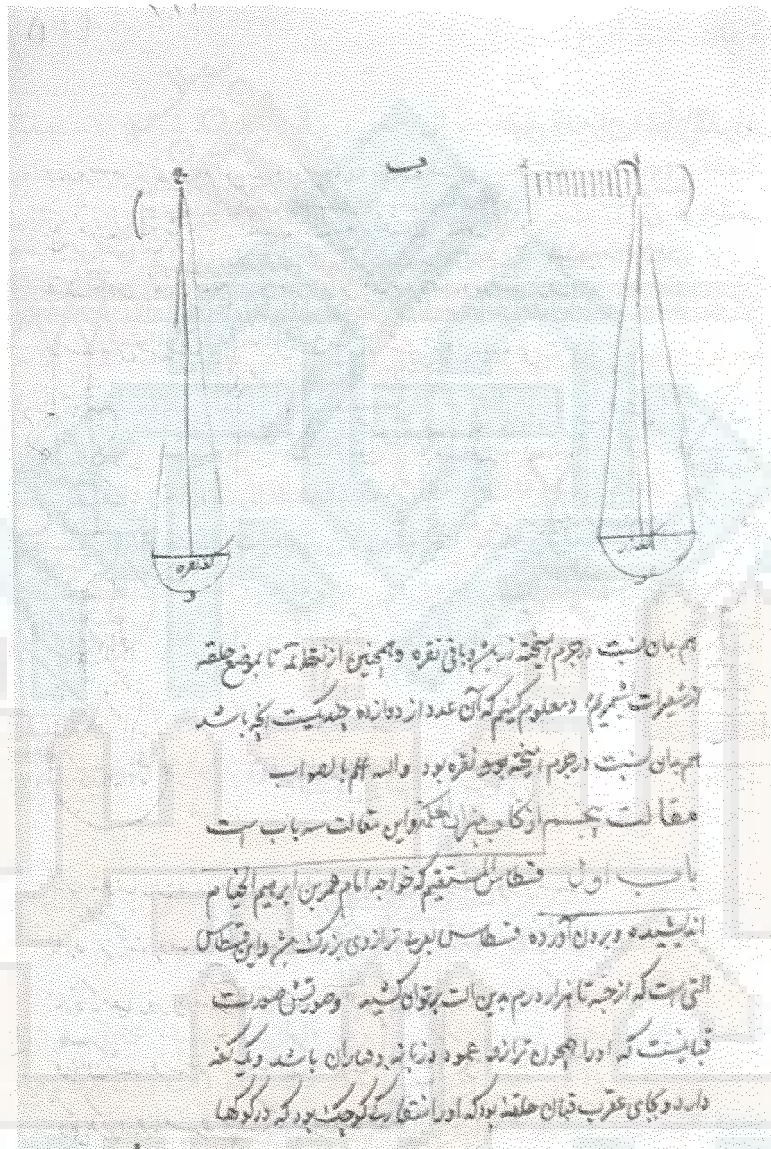 ج
کفه نقره
هم بدان نسبت در جرم آمیخته زر بود و باقی نقره و همچنین از نقطه تا بموضع حلقه
از شعیرات بشمریم و معلوم کنیم که آن عدد از دوازده چندیست آنچه باشد
هم بدان نسبت در جرم آمیخته نقره بود والله اعلم بالصواب
مقالت پنجم از کتاب میزان الحکمه و این مقالت سه باب است
باب اول قسطاس المستقیم که خواجه امام عمر بن ابرهیم الخیام
اندیشیده و برون آورده قسطاس ترازوی بزرگ و این قسطاس
آلتی است که از حبه تا هزار درم بدین آلت بتوان کشید و صورتش صورت
قبانیست که او را همچون ترازو عمود و زبانه و هاران باشد و یک کفه
دارد و بجای عقرب قبان حلقه بود که او را کوچک بود که در گوها